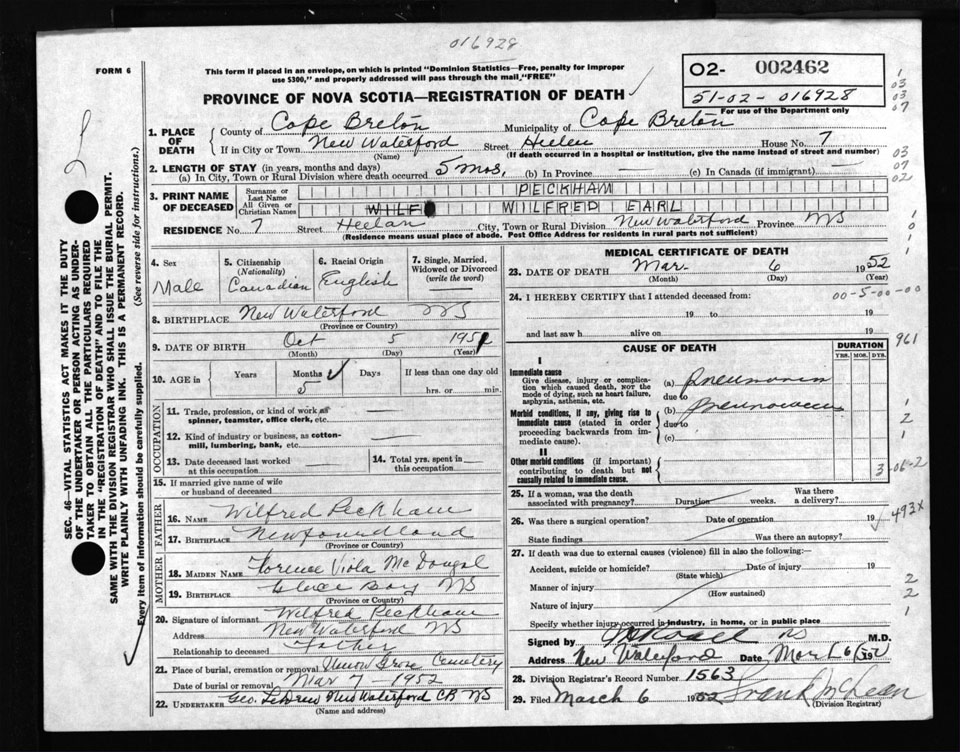 016928
FORM 6
This form if placed in an envelope, on which is printed "Dominion Statistics—Free, penalty for improper
use $300," and properly addressed will pass through the mail "FREE"
PROVINCE OF NOVA SCOTIA—REGISTRATION OF DEATH
O2- 002462
51-02-016928
For use of the Department only
1. PLACE OF DEATH
County of Cape Breton Municipality of Cape Breton
If in City or Town New Waterford Street House No. 7
(Name) (If death occurred in a hospital or institution, give the name instead of street and number)
2. LENGTH OF STAY (in years, months and days)
(a) In City, Town or Rural Division where death occurred 5 mos. (b) In Province (c) In Canada (if immigrant)
3. PRINT NAME OF DECEASED
Surname or Last Name PECKHAM
All Given or Christian Names WILF WILFRED EARL
RESIDENCE No. 7 Street City, Town or Rural Division New Waterford Province NS
(Residence means usual place of abode. Post Office Address for residents in rural parts not sufficient)
4. Sex
Male
5. Citizenship
(Nationality)
Canadian
6. Racial Origin
English
7. Single, Married, Widowed or Divorced
(write the word)
8. BIRTHPLACE New Waterford NS
(Province or Country)
9. DATE OF BIRTH Oct 5 1951
(Month) (Day) (Year)
10. AGE in Years Months Days If less than one day old
5 hrs. or min.
OCCUPATION
11. Trade, profession, or kind of work as spinner, teamster, office clerk, etc.
12. Kind of industry or business, as cotton-mill, lumbering, bank, etc.
13. Date deceased last worked at this occupation
14. Total yrs. spent in this occupation
15. If married give name of wife or husband of deceased
FATHER
16. NAME Wilfred Peckham
17. BIRTHPLACE Newfoundland
(Province or Country)
MOTHER
18. MAIDEN NAME Florence Viola McDougal
19. BIRTHPLACE Glace Bay NS
(Province or Country)
20. Signature of informant Wilfred Peckham
Address New Waterford NS
Relationship to deceased Father
21. Place of burial, cremation or removal Union Grove Cemetery
Date of burial or removal Mar 7 1952
22. UNDERTAKER Geo. New Waterford CB NS
(Name and address)
MEDICAL CERTIFICATE OF DEATH
23. DATE OF DEATH Mar. 6 1952
(Month) (Day) (Year)
24. I HEREBY CERTIFY that I attended deceased from:
00-5-00-00
19 to 19
and last saw h alive on 19
961
CAUSE OF DEATH
DURATION
YRS. MOS. DYS.
I
Immediate cause
Give disease, injury or complication which caused death, NOT the mode of dying, such as heart failure, asphyxia, asthenia, etc.
(a) pneumonia
due to
Morbid conditions, if any, giving rise to immediate cause (stated in order proceeding backwards from immediate cause).
(b)
due to
(c)
II
Other morbid conditions (if important) contributing to death but not causally related to immediate cause.
3-06-2
25. If a woman, was the death associated with pregnancy? Duration weeks. Was there a delivery?
26. Was there a surgical operation? Date of operation 19
State findings Was there an autopsy?
493X
27. If death was due to external causes (violence) fill in also the following:—
Accident, suicide or homicide? Date of injury 19
(State which)
Manner of injury
(How sustained)
Nature of injury
Specify whether injury occurred in industry, in home, or in public place
Signed by M.D.
Address New Waterford Date March 6/52
28. Division Registrar's Record Number 1563
29. Filed March 6 1952 Frank McLean
(Division Registrar)
SEC. 46—VITAL STATISTICS ACT MAKES IT THE DUTY
OF THE UNDERTAKER OR PERSON ACTING AS UNDERTAKER
TO OBTAIN ALL THE PARTICULARS REQUIRED
IN THE "REGISTRATION OF DEATH" AND TO FILE THE
SAME WITH THE DIVISION REGISTRAR WHO SHALL ISSUE THE BURIAL PERMIT.
WRITE PLAINLY WITH UNFADING INK. THIS IS A PERMANENT RECORD.
Every item of information should be carefully supplied. (See reverse side for instructions.)
1
03
03
07
03
07
02
1
0
1
1
1
2
1
2
2
1